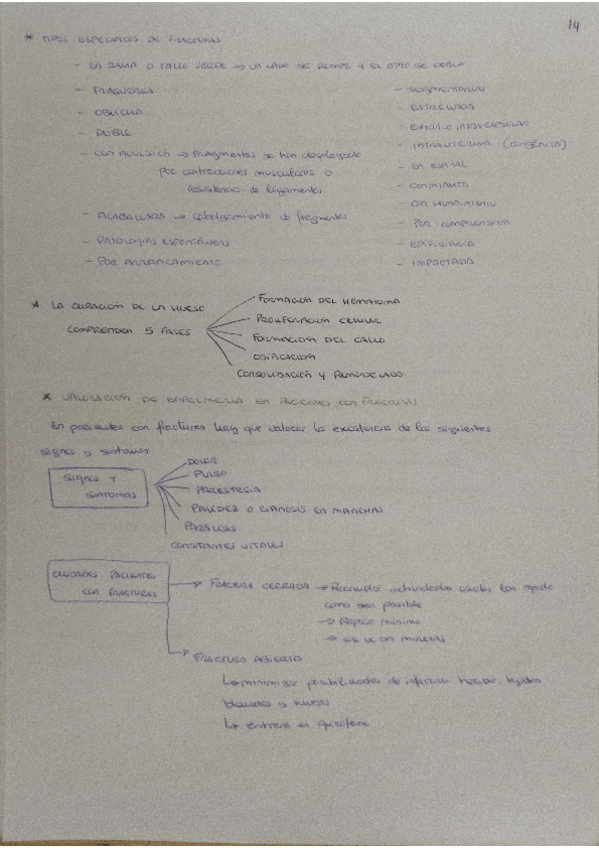 14
* TIPOS ESPECÍFICOS DE FRACTURAS
- EN RAMA O TALLO VERDE → UN LADO SE ROMPE Y EL OTRO SE DOBLA
- TRANSVERSA
- OBLICUA
- DOBLE
- CON AVULSIÓN → Fragmentos se han desplazado
por contracciones musculares o
resistencia de ligamentos
- ACABALLADA → cabalgamiento de fragmentos
- PATOLOGÍAS ESPONTÁNEAS
- POR ARRANCAMIENTO
- SEGMENTARIA
- ESTRELLADA
- EXTRA O INTRACAPSULAR
- INTRAUTERINA (CONGÉNITA)
- EN ESPIRAL
- CONMINUTA
- CON HUNDIMIENTO
- POR COMPRENSIÓN
- EPIFISIARIA
- IMPACTADA
* LA CURACIÓN DE LA HUESO
COMPRENDEN 5 FASES
FORMACIÓN DEL HEMATOMA
PROLIFERACIÓN CELULAR
FORMACIÓN DEL CALLO
OSIFICACIÓN
CONSOLIDACIÓN Y REMODELADO
* VALORACIÓN DE ENFERMERÍA EN PACIENTES CON FRACTURAS
En pacientes con fracturas hay que valorar la existencia de los siguientes
signos y síntomas
SIGNOS Y
SÍNTOMAS
DOLOR
PULSO
PARESTESIA
PALIDEZ O CIANOSIS EN MANCHAS
PARÁLISIS
CONSTANTES VITALES
CUIDADOS PACIENTES
CON FRACTURAS
→ FRACTURA CERRADA → Reanudar actividades usuales tan rápido
como sea posible
→ Reposo mínimo
→ SE LE DA MULETAS
→ FRACTURA ABIERTA
↳ minimizar posibilidades de infección heridas, tejidos
blandos y hueso
↳ entrare en quirófano